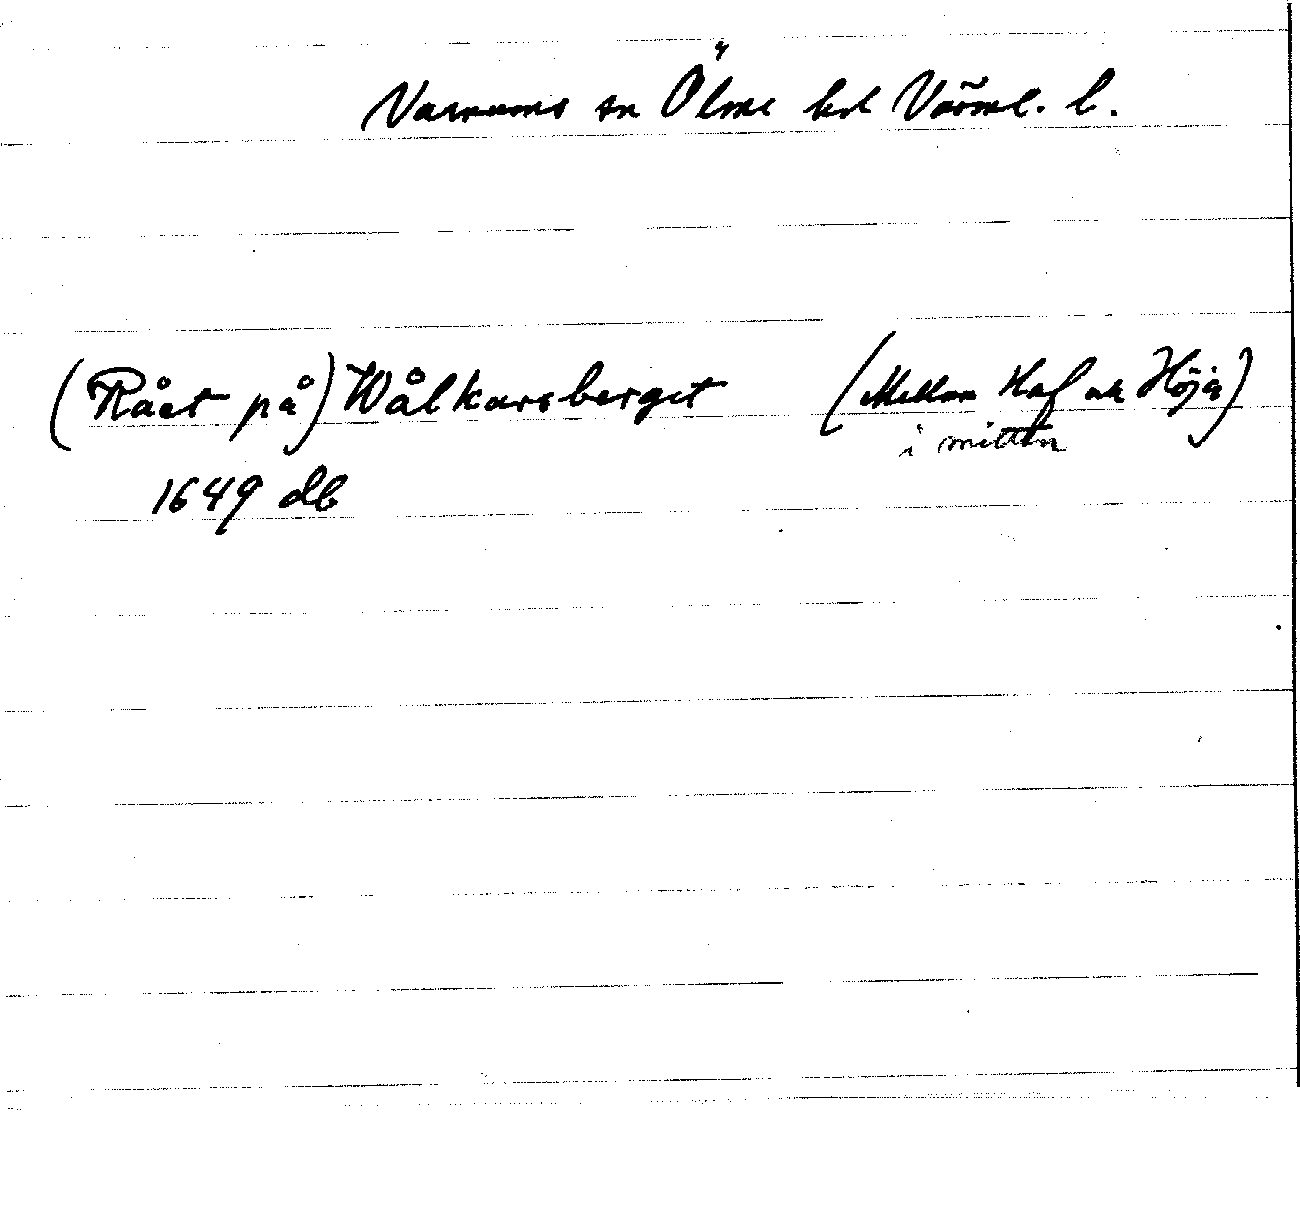 Varnums sn Ölme hd Värml. l.
(Rået på) Wålkarsberget (Mellan Kaf ok Höja)
i mitten
1649 db